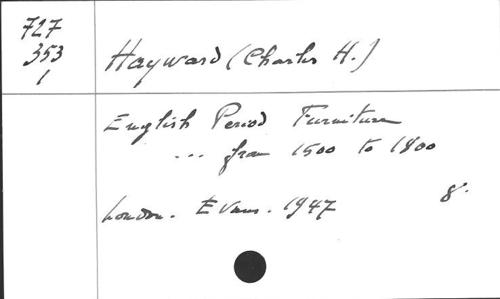 727
353
1
Hayward (Charles H.)
English Period Furniture
... from 1500 to 1800
London. Evans. 1947 8.